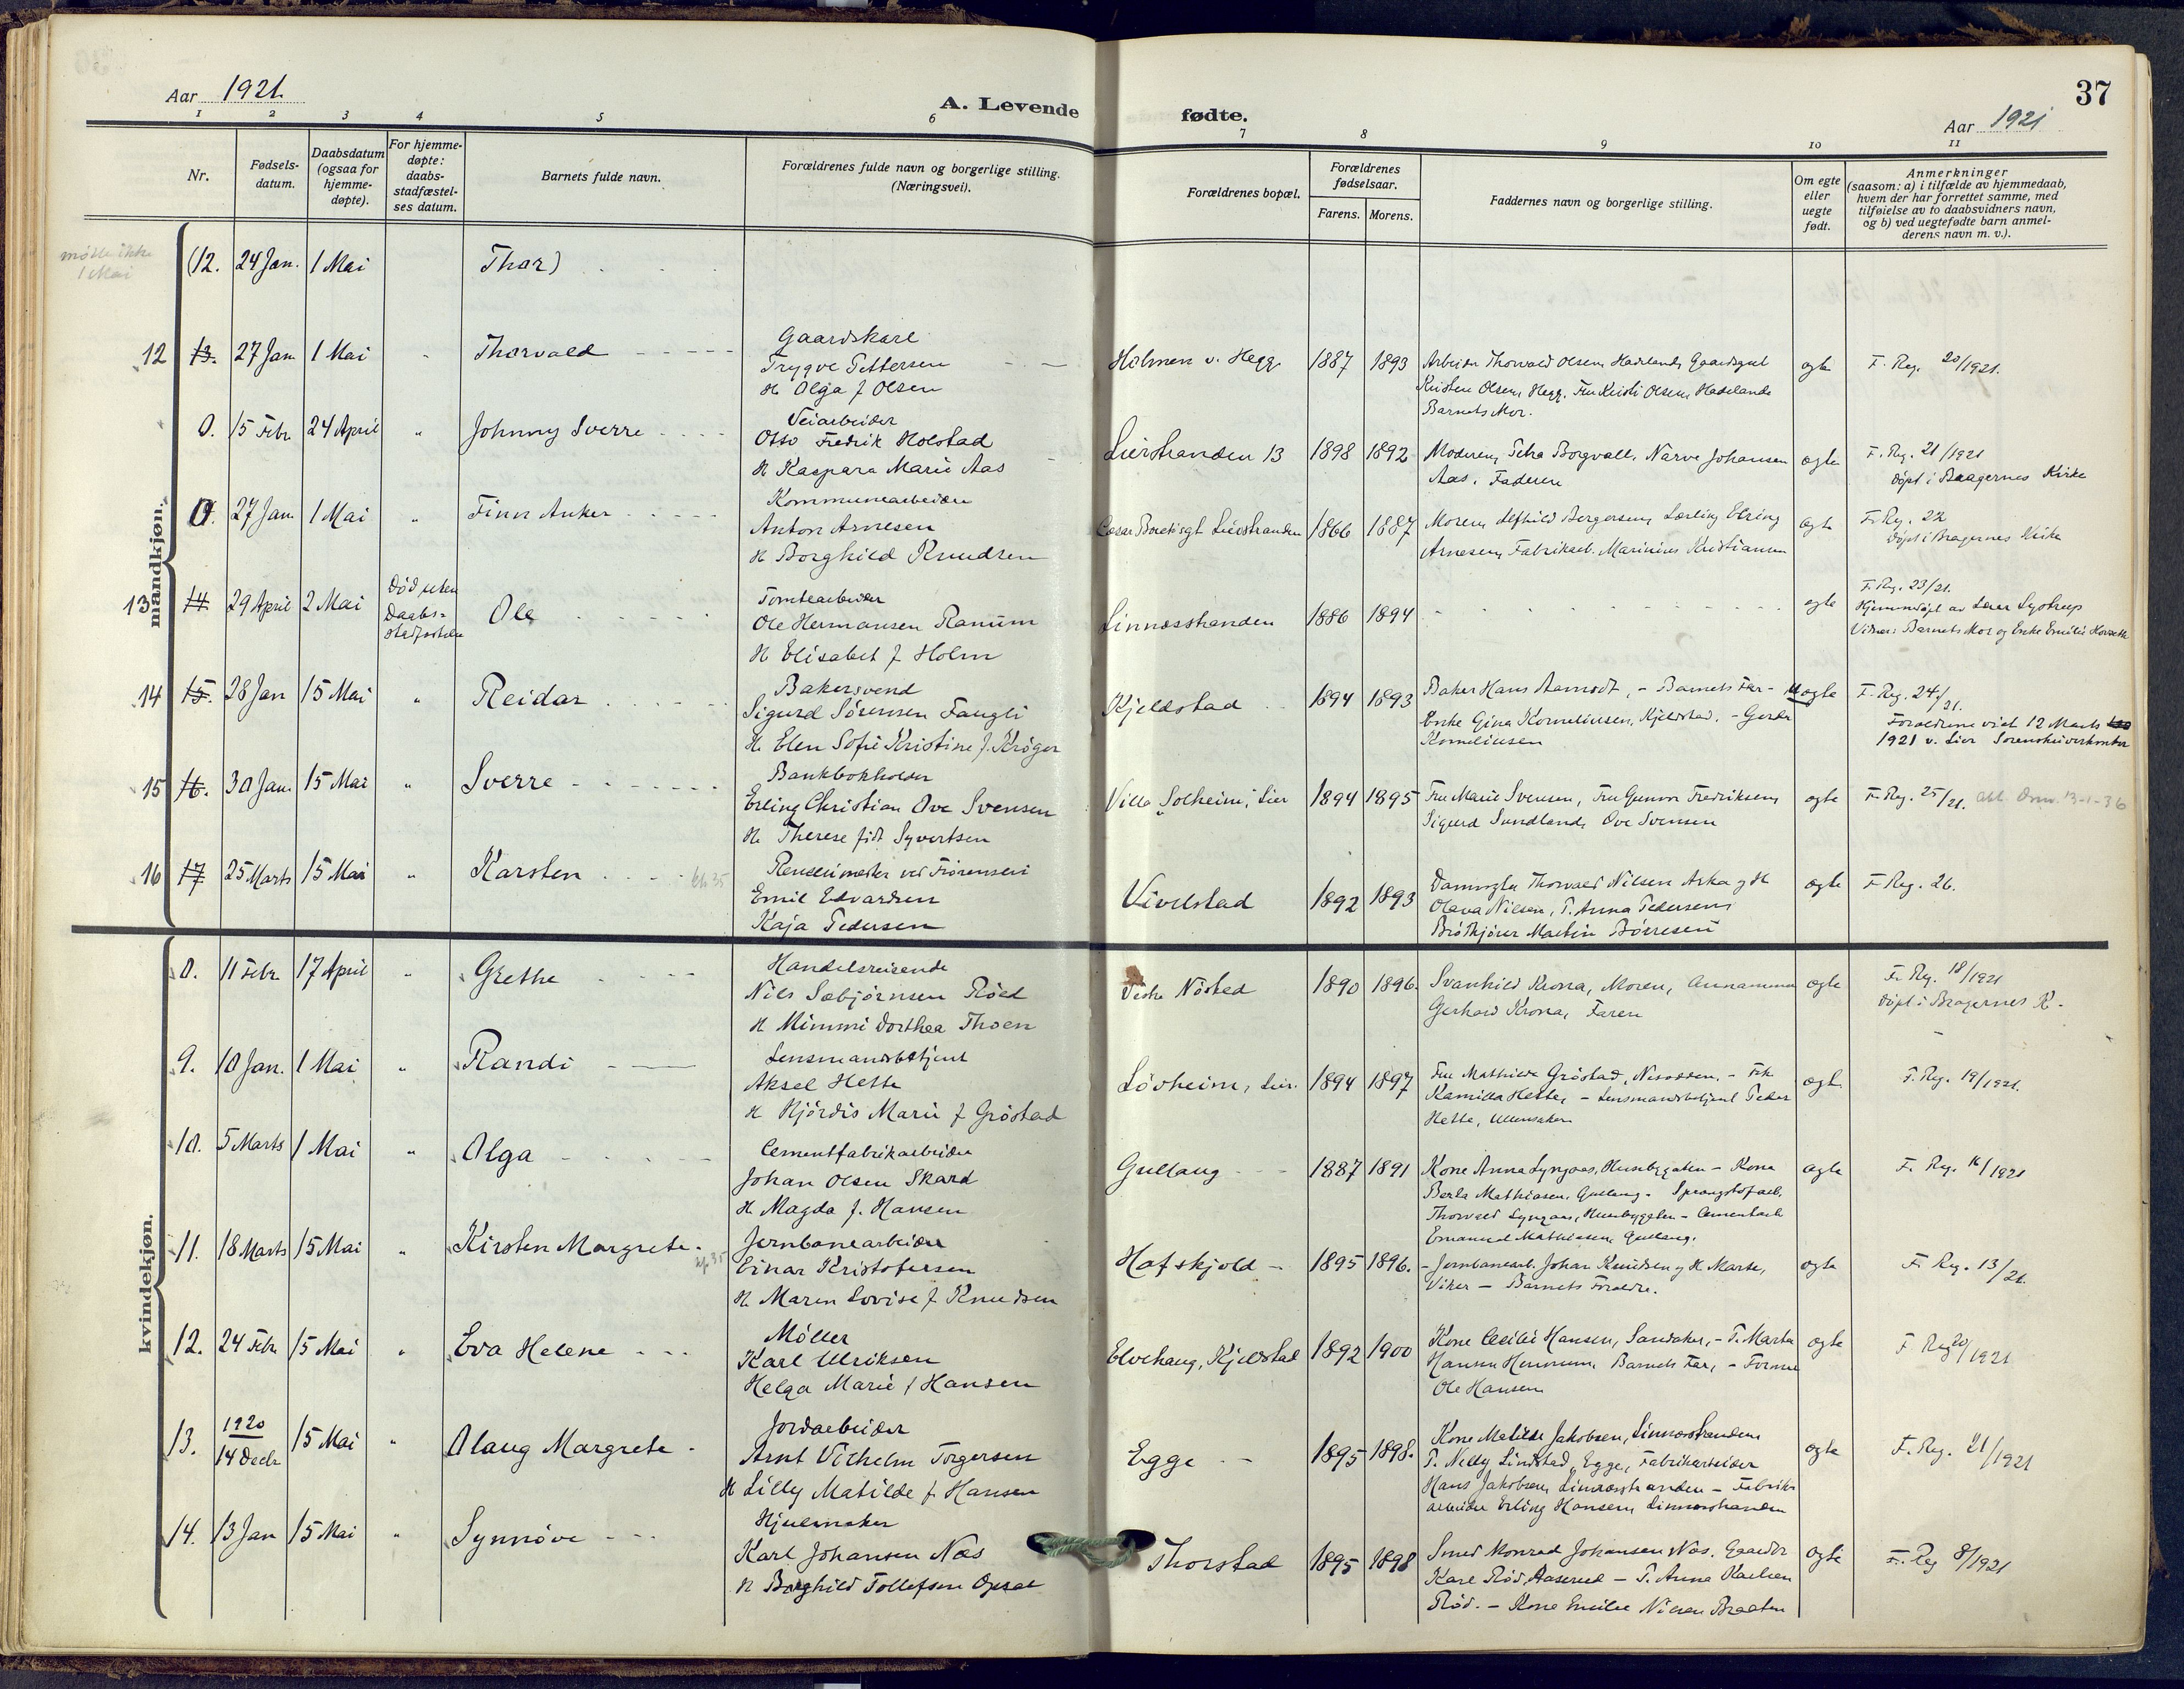 37
Aar 1921.
A. Levende fødte.
Aar 1921
1 2 3 4 5 6 7 8 9 10 11
Nr.
Fødsels-
datum.
Daabsdatum
(ogsaa for
hjemme-
døpte).
For hjemme-
døpte:
daabs-
stadfæstel-
ses datum.
Barnets fulde navn.
Forældrenes fulde navn og borgerlige stilling.
(Næringsvei).
Forældrenes bopæl.
Forældrenes
fødselsaar.
Farens. Morens.
Faddernes navn og borgerlige stilling.
Om egte
eller
uegte
født.
Anmerkninger
(saasom: a) i tilfælde av hjemmedaab,
hvem der har forrettet samme, med
tilføielse av to daabsvidners navn,
og b) ved uegtefødte barn anmel-
derens navn m. v.).
mandkjøn.
møtte ikke
1 Mai
(12. 24 Jan. 1 Mai Thor)
12 13. 27 Jan 1 Mai " Thorvald
Gaardskarl
Trygve Pettersen
H Olga f Olsen
Holmen v. Hegg 1887 1893
Arbeider Thorvald Olsen, Hadeland, Gaardsgut
Kristen Olsen, Hegg. Fru Kristi Olsen Hadeland
Barnets Mor.
egte F. Reg. 20/1921.
0. 15 Febr 24 April " Johnny Sverre
Veiarbeider
Otto Fredrik Holstad
H Kaspara Marie Aas
Lierstranden 13 1898 1892
Moderen, Petra Borgvall, Narve Johansen
Aas, Faderen
egte F. Reg. 21/1921
døpt i Bragernes Kirke
0. 27 Jan 1 Mai " Finn Anker
Kommunearbeider
Anton Arnesen
H Borghild Knudsen
Lierstranden 1866 1887
Moren, Alfhild Bergersen, Lærling Elring
Arnesen, Fabrikseb. Marinius Kristiansen
egte F. Reg. 22
døpt i Bragernes Kirke
13 14 29 April 2 Mai
Død uten
Daabs-
stadfestelse
Ole
Tomtearbeider
Ole Hermansen Ranum
H Elisabet f Holm
Linnesstranden 1886 1894
egte F. Reg. 23/21.
Hjemmedøpt av Lærer Systrup
Vidner: Barnets Mor og Enke Emilie
14 15. 28 Jan 15 Mai " Reidar
Bakersvend
Sigurd Sörensen Faugli
H. Elen Sofie Kristine f. Kröger
Kjeldstad 1894 1893
Baker Hans Aamodt, - Barnets Far -
Enke Gina Korneliusen, Kjeldstad. - Gerda
Korneliusen
Uegte F. Reg. 24/21.
Foreldrene viet 12 Marts
1921 v. Lier Sorenskriverkontor
15 16. 30 Jan. 15 Mai " Sverre
Bankbokholder
Erling Christian Ove Svensen
H. Therese født Syvertsen
Villa Solheim, Lier 1894 1895
Fru Marie Svensen, Fru Gunvor Fredriksen,
Sigurd Sundland, Ove Svensen
egte F. Reg. 25/21. 13-1-36
16 17 25 Marts 15 Mai " Karsten
Emil Edvardsen
Kaja Pedersen
Vivelstad 1892 1893
Thorvald Nilsen Aska og H
Olava Nilsen, P. Anna Pedersen,
Brödkjörer Martin Börresen
egte F Reg. 26.
kvindekjøn.
8. 11 Febr 17 April " Grethe
Handelsreisende
Nils Sæbjörnsen Röed
H Mimmi Dorthea Thoen
Vestre Nösted 1890 1896.
Svanhild Krona, Moren,
Gerhard Krona, Faren
egte F. Reg. 18/1921
døpt i Bragernes K.
9. 10 Jan. 1 Mai " Randi
Lensmandsbetjent
Aksel Hette
H Hjördis Marie f Gröstad
Lövheim, Lier. 1894 1897
Fru Mathilde Gröstad, Nesodden, - Frk.
Kamilla Hette, - Lensmandsbetjent Peder
Hette, Ullensaker
egte F. Reg. 19/1921.
10. 5 Marts 1 Mai " Olga
Cementfabrikarbeider
Johan Olsen Skard
H. Magda f. Hansen
Gullaug 1887 1891
Kone Anna Lyngaas, Husebygaten - Kone
Berta Mathiasen, Gullaug - Sprængstofarb.
Thorvald Lyngaas, Husebygaten - Cementarb
Emanuel Mathiesen, Gullaug.
egte F. Reg. 16/1921
11. 18 Marts 15 Mai " Kirsten Margrete
Jernbanearbeider
Einar Kristofersen
H. Maren Lovise f Knudsen
Hafskjold 1895 1896.
- Jernbanearb. Johan Knudsen og H Marte,
Viker - Barnets Foreldre.
egte F. Reg. 13/21.
12. 24 Febr 15 Mai " Eva Helene
Möller
Karl Ulriksen
Helga Marie f Hansen
Elvehaug, Kjeldstad 1892 1900
Kone Cecilie Hansen, Sandaker, - P. Marta
Hansen Hennum, Barnets Far, -
Ole Hansen
egte F Reg 20/1921
13. 1920
14 Decbr 15 Mai " Olaug Margrete
Jordarbeider
Arnt Vilhelm Torgersen
H Lilly Matilde f Hansen
Egge 1895 1898.
Kone Matilde Jakobsen, Linnesstranden
P. Nelly Lindstad, Egge, Fabrikarbeider
Hans Jakobsen, Linnesstranden - Fabrik-
arbeider Erling Hansen, Linnesstranden
egte F. Reg. 21/1921
14. 13 Jan 15 Mai " Synnöve
Hjulmaker
Karl Johansen Næs
H Borghild Tollefsen Opsal
Thorstad 1895 1898
Smed Konrad Johansen Næs. Gaardbr
Karl Röd, Aaserud - P. Anna Karlsen
Röd. - Kone Emilie Nilsen Braaten
egte F. Reg 8/1921